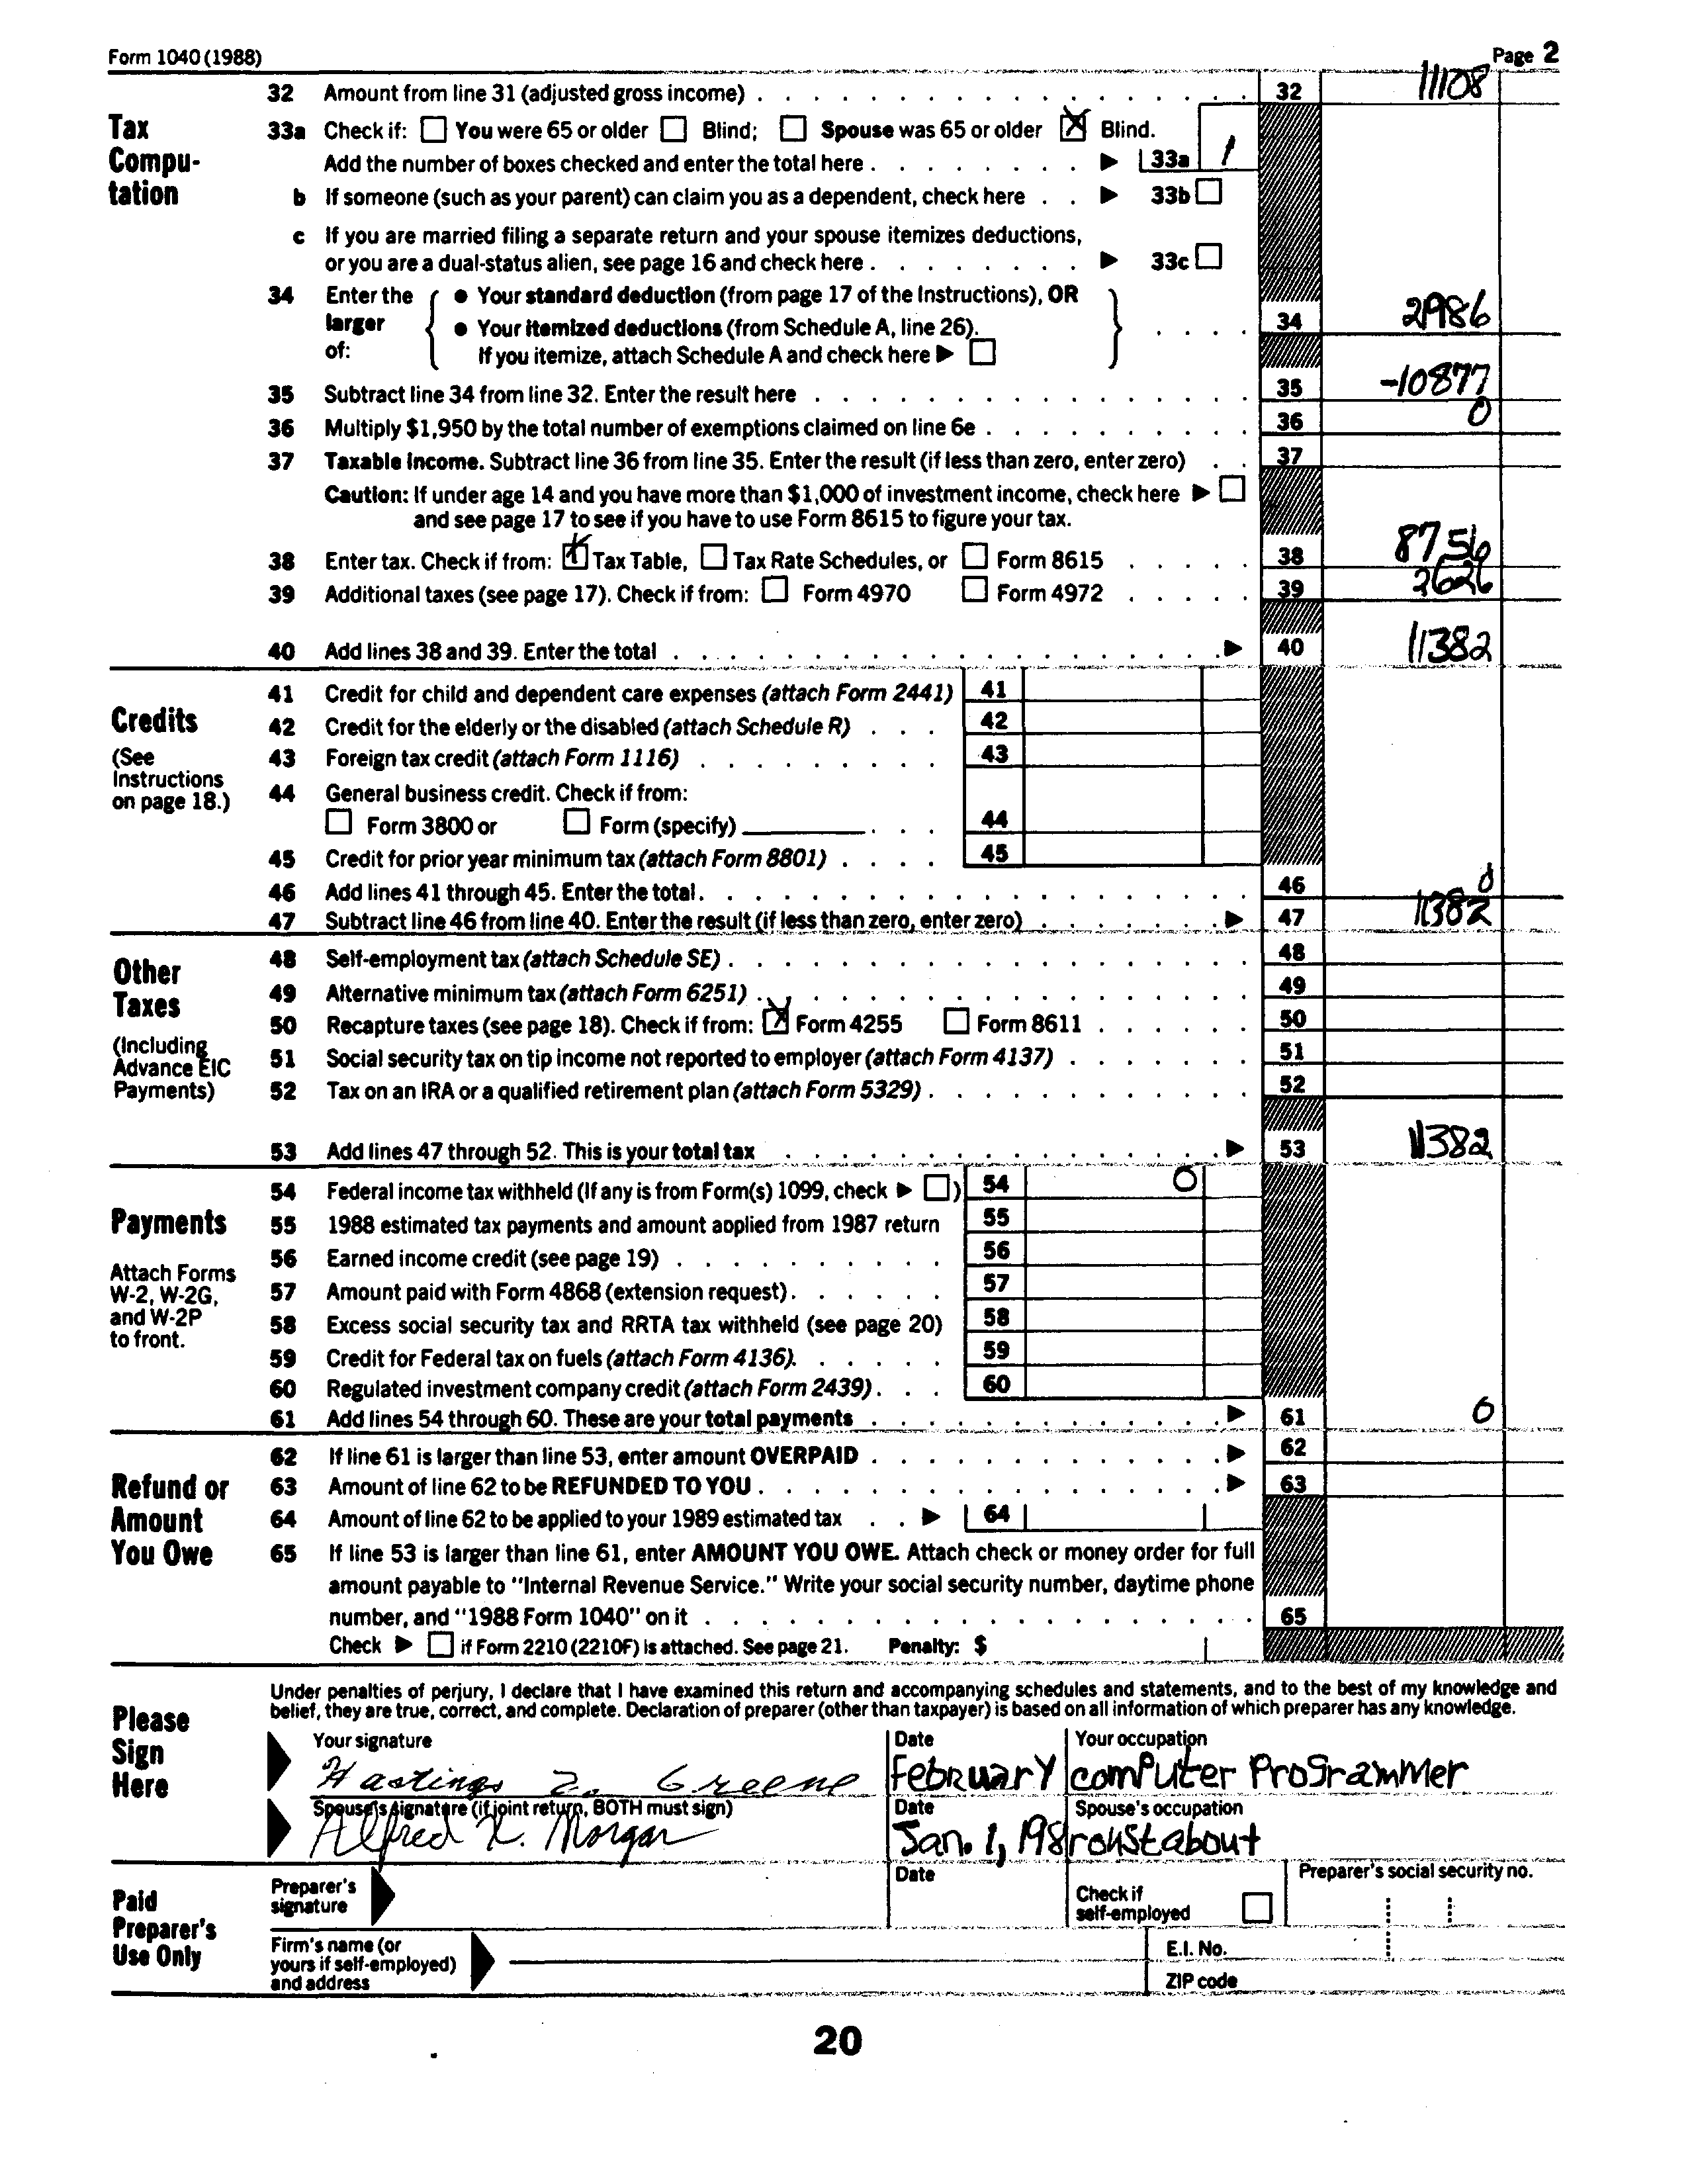 Form 1040 (1988) Page 2
32 Amount from line 31 (adjusted gross income) 32 11108
Tax Compu-tation
33a Check if: You were 65 or older Blind; Spouse was 65 or older X Blind.
Add the number of boxes checked and enter the total here 33a 1
b If someone (such as your parent) can claim you as a dependent, check here 33b
c If you are married filing a separate return and your spouse itemizes deductions,
or you are a dual-status alien, see page 16 and check here 33c
34 Enter the larger of:
● Your standard deduction (from page 17 of the Instructions), OR
● Your itemized deductions (from Schedule A, line 26).
If you itemize, attach Schedule A and check here
34 2986
35 Subtract line 34 from line 32. Enter the result here 35 -10877
36 Multiply $1,950 by the total number of exemptions claimed on line 6e 36 0
37 Taxable income. Subtract line 36 from line 35. Enter the result (if less than zero, enter zero) 37
Caution: If under age 14 and you have more than $1,000 of investment income, check here
and see page 17 to see if you have to use Form 8615 to figure your tax.
38 Enter tax. Check if from: X Tax Table, Tax Rate Schedules, or Form 8615 38 8756
39 Additional taxes (see page 17). Check if from: Form 4970 Form 4972 39 2626
40 Add lines 38 and 39. Enter the total 40 11382
Credits
(See Instructions on page 18.)
41 Credit for child and dependent care expenses (attach Form 2441) 41
42 Credit for the elderly or the disabled (attach Schedule R) 42
43 Foreign tax credit (attach Form 1116) 43
44 General business credit. Check if from:
Form 3800 or Form (specify) 44
45 Credit for prior year minimum tax (attach Form 8801) 45
46 Add lines 41 through 45. Enter the total 46 0
47 Subtract line 46 from line 40. Enter the result (if less than zero, enter zero) 47 11382
Other Taxes
(Including Advance EIC Payments)
48 Self-employment tax (attach Schedule SE) 48
49 Alternative minimum tax (attach Form 6251) 49
50 Recapture taxes (see page 18). Check if from: X Form 4255 Form 8611 50
51 Social security tax on tip income not reported to employer (attach Form 4137) 51
52 Tax on an IRA or a qualified retirement plan (attach Form 5329) 52
53 Add lines 47 through 52. This is your total tax 53 11382
Payments
Attach Forms W-2, W-2G, and W-2P to front.
54 Federal income tax withheld (If any is from Form(s) 1099, check ) 54 0
55 1988 estimated tax payments and amount applied from 1987 return 55
56 Earned income credit (see page 19) 56
57 Amount paid with Form 4868 (extension request) 57
58 Excess social security tax and RRTA tax withheld (see page 20) 58
59 Credit for Federal tax on fuels (attach Form 4136) 59
60 Regulated investment company credit (attach Form 2439) 60
61 Add lines 54 through 60. These are your total payments 61 0
Refund or Amount You Owe
62 If line 61 is larger than line 53, enter amount OVERPAID 62
63 Amount of line 62 to be REFUNDED TO YOU 63
64 Amount of line 62 to be applied to your 1989 estimated tax 64
65 If line 53 is larger than line 61, enter AMOUNT YOU OWE. Attach check or money order for full
amount payable to "Internal Revenue Service." Write your social security number, daytime phone
number, and "1988 Form 1040" on it 65
Check if Form 2210 (2210F) is attached. See page 21. Penalty: $
Please Sign Here
Under penalties of perjury, I declare that I have examined this return and accompanying schedules and statements, and to the best of my knowledge and
belief, they are true, correct, and complete. Declaration of preparer (other than taxpayer) is based on all information of which preparer has any knowledge.
Your signature Date Your occupation
Hastings Z. Greene February comPuter ProGrammer
Spouse's signature (if joint return, BOTH must sign) Date Spouse's occupation
Alfred X. Morgan Jan. 1, 198 roustabout
Paid Preparer's Use Only
Preparer's signature Date Check if self-employed Preparer's social security no.
Firm's name (or yours if self-employed) and address
E.I. No.
ZIP code
20